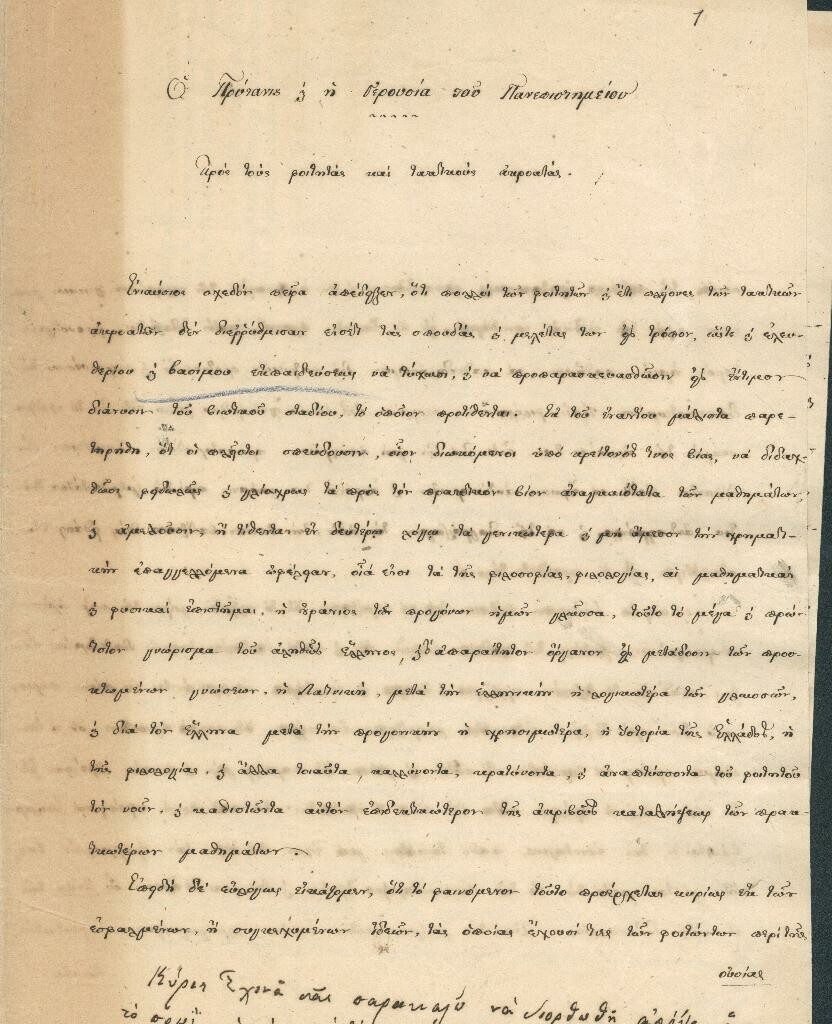 1
Ὁ Πρύτανις ϗ ἡ Γερουσία τοῦ Πανεπιστημείου
Πρός τούς φοιτητάς καί τακτικούς ἀκροατάς.
Ἐνιαύσιος σχεδόν πεῖρα ἀπέδειξεν, ὅτι πολλοί τῶν φοιτητῶν ϗ ἔτι πλείονες τῶν τακτικῶν
ἀκροατῶν δέν διεῤῥύθμισαν εἰσέτι τάς σπουδάς ϗ μελέτας των εἰς τρόπον, ὥστε ϗ ἐλευ-
θερίου ϗ βασίμου ἐκπαιδεύσεως νά τύχωσι, ϗ νά προπαρασκευασθῶσιν εἰς ἔντιμον
διάνυσιν τοῦ βιωτικοῦ σταδίου, τό ὁποῖον προτίθενται. Ἐκ τοῦ ἐναντίου μάλιστα παρε-
τηρήθη, ὅτι οἱ πλεῖστοι σπεύδουσιν, οἷον διωκόμενοι ὑπό κρείττονός τινος βίας, νά διδαχ-
θῶσι ϗ γλίσχρως τά πρός τόν πρακτικόν βίον ἀναγκαιότατα τῶν μαθημάτων,
ϗ ἀμελοῦσιν, ἤ τίθενται ἐν δευτέρῳ λόγῳ τά γενικώτερα ϗ μή ἄμεσον τήν χρηματι-
κήν ἐπαγγελλόμενα ὠφέλειαν, οἷά εἰσι τά τῆς φιλοσοφίας, φιλολογίας, αἱ μαθηματικαί
ϗ φυσικαί ἐπιστῆμαι, ἡ οὐράνιος τῶν προγόνων ἡμῶν γλῶσσα, τοῦτο τό μέγα ϗ πρώ-
τιστον γνώρισμα τοῦ ἀληθῶς Ἕλληνος, ϗ τό ἀπαραίτητον ὄργανον εἰς μετάδοσιν τῶν προσ-
κτωμένων γνώσεων, ἡ Λατινική, μετά τήν ἑλληνικήν ἡ λογικωτέρα τῶν γλωσσῶν,
ϗ διά τόν Ἕλληνα μετά τήν προγονικήν ἡ χρησιμωτέρα, ἡ ἱστορία τῆς Ἑλλάδος, ἡ
τῆς φιλολογίας, ϗ ἄλλα τοιαῦτα, καλλύνοντα, κρατύνοντα, ϗ ἀναπτύσσοντα τοῦ φοιτητοῦ
τόν νοῦν, ϗ καθιστῶντα αὐτόν ἐπιδεκτικώτερον τῆς ἀκριβοῦς καταλήψεως τῶν πρακ-
τικωτέρων μαθημάτων.
Ἐπειδή δέ εὐλόγως εἰκάζομεν, ὅτι τό φαινόμενον τοῦτο προέρχεται κυρίως ἐκ τῶν
ἐσφαλμένων, ἤ συγκεχυμένων ἰδεῶν, τάς ὁποίας ἔχουσί τινες τῶν φοιτώντων περί τῆς
οὐσίας
Κύριε Σχινᾶ σᾶς παρακαλῶ νά διορθωθῇ
τό